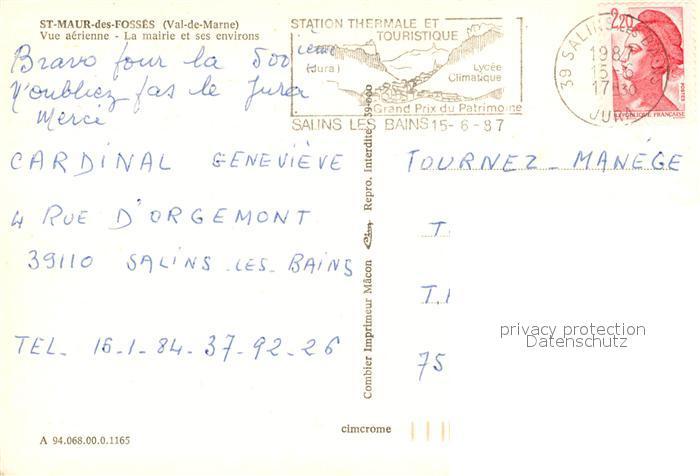 ST-MAUR-des-FOSSÉS (Val-de-Marne)
Vue aérienne - La mairie et ses environs
Bravo pour la 500 ième
N'oubliez pas le Jura
Merci
CARDINAL GENEVIÈVE
4 RUE D'ORGEMONT
39110 SALINS-LES-BAINS
TEL. 16-1-84-37-92-26
A 94.068.00.0.1165
STATION THERMALE ET
TOURISTIQUE
(Jura)
Lycée
Climatique
Grand Prix du Patrimoine
SALINS LES BAINS 15-6-87
39 SALINS LES BAINS
1987
15-6
17H30
JURA
2,20
POSTES
RÉPUBLIQUE FRANÇAISE
Combier Imprimeur Mâcon Cim Repro. Interdite 39-000
TOURNEZ-MANÉGE
T.
T.
75
privacy protection
Datenschutz
cimcrome